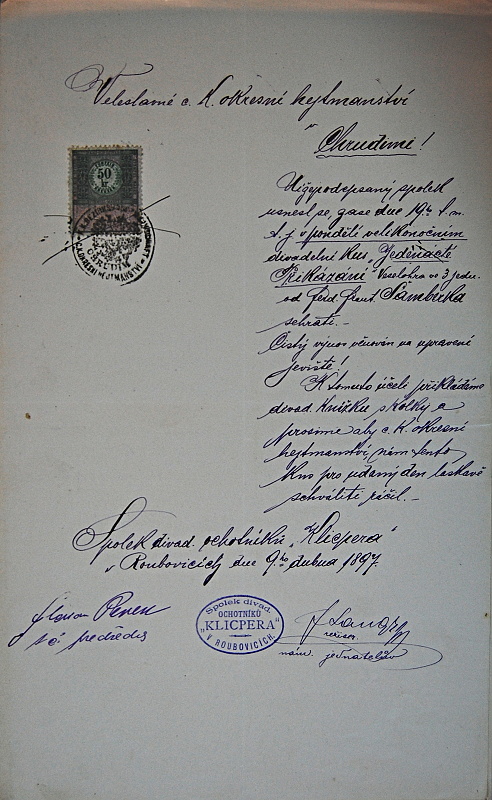 Veleslavné c. k. okresní hejtmanství
v Chrudimi!
50
kr
Nížepodepsaný spolek
usnesl se, že dne 19ho t. m.
t. j. v pondělí velikonočním
divadelní kus „Jedenácté
Přikázání" Veselohra ve 3 jedn.
od Ferd. Frant. Šamberka
sehrati. -
Čistý výnos věnován na upravení
jeviště!
K tomuto účeli přikládáme
divad. knížku s kolky a
prosíme aby c. k. okresní
hejtmanství, nám tento
kus pro udaný den laskavě
schváliti ráčil. -
Spolek divad. ochotníků „Klicpera"
v Roubovicích dne 9ho dubna 1897.
Spolek divad.
OCHOTNÍKŮ
„KLICPERA"
V ROUBOVICÍCH.
předseda
nám. jednatelův